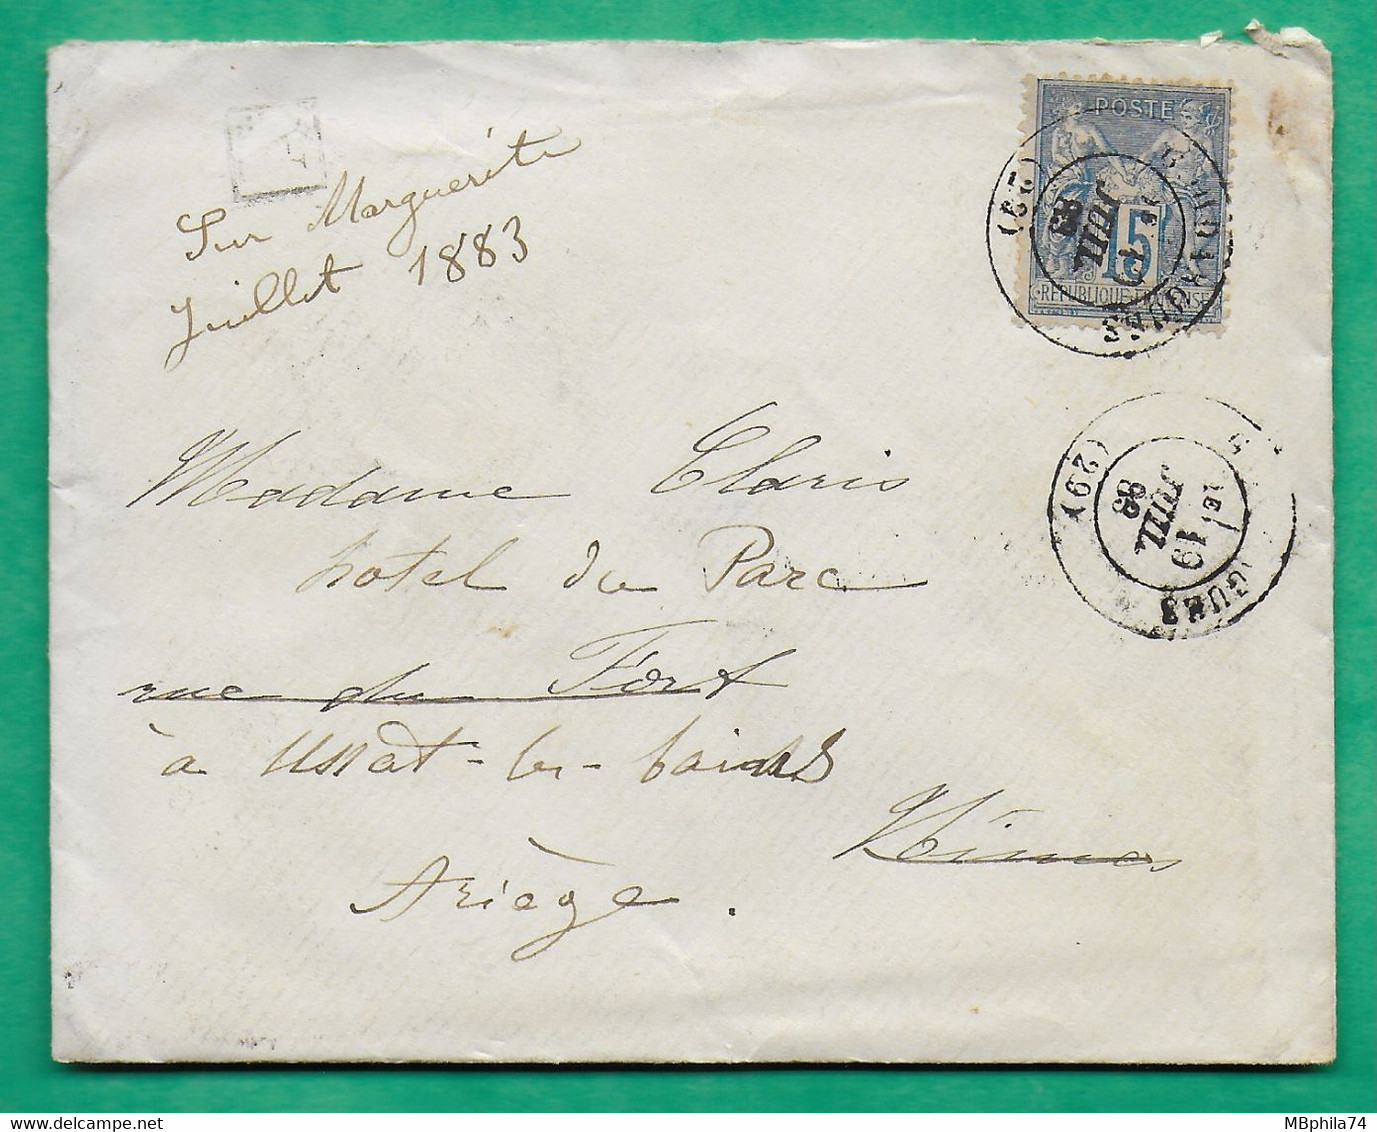 Sur Marguerite
Juillet 1883
POSTE
15
REPUBLIQUE FRANÇAISE
(29)
19
JUIL.
83
(29)
1E
19
JUIL.
83
Madame Claris
hotel du Parc
rue du Fort
à Ussat-les-bains
Nîmes
Ariège.
MBphila74